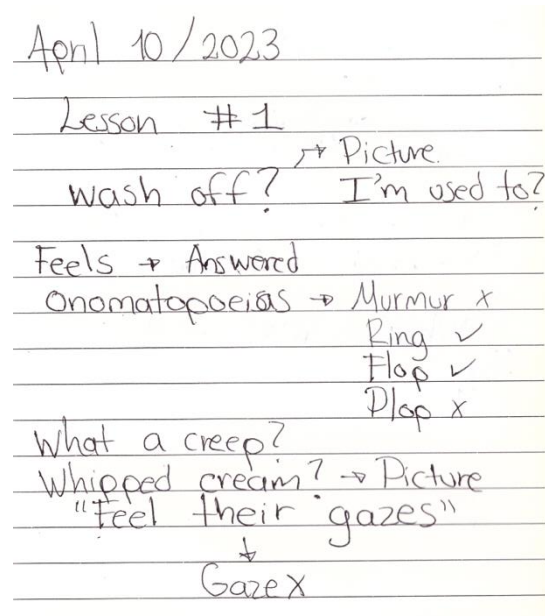 April 10/2023
Lesson #1
→ Picture.
wash off? I'm used to?
Feels → Answered
Onomatopoeias → Murmur x
Ring ✓
Flop ✓
Plop x
What a creep?
Whipped cream? → Picture
"Feel their gazes"
↓
Gaze X